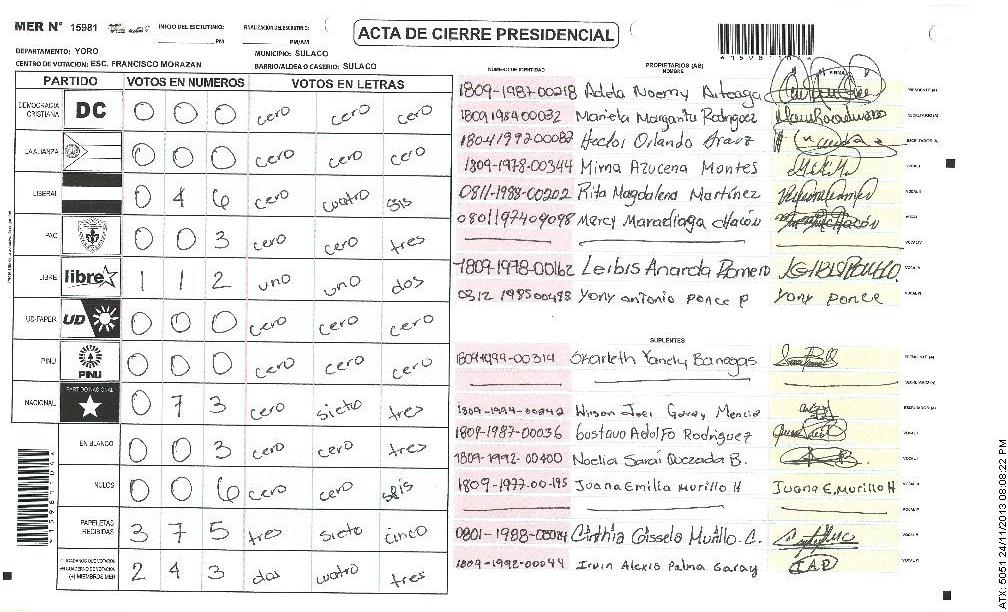 MER N° 15981 INICIO DEL ESCRUTINIO: PM FINALIZACION DEL ESCRUTINIO: PM/AM
ACTA DE CIERRE PRESIDENCIAL
DEPARTAMENTO: YORO MUNICIPIO: SULACO
CENTRO DE VOTACION: ESC. FRANCISCO MORAZAN BARRIO/ALDEA O CASERIO: SULACO
PARTIDO VOTOS EN NUMEROS VOTOS EN LETRAS
DEMOCRACIA CRISTIANA DC 0 0 0 cero cero cero
LA ALIANZA 0 0 0 cero cero cero
LIBERAL 0 4 6 cero cuatro sis
PAC 0 0 3 cero cero tres
LIBRE libre 1 1 2 uno uno dos
UD-FAPER UD 0 0 0 cero cero cero
PINU PINU 0 0 0 cero cero cero
NACIONAL PARTIDO NACIONAL 0 7 3 cero sieto tres
EN BLANCO 0 0 3 cero cero tres
NULOS 0 0 6 cero cero seis
PAPELETAS RECIBIDAS 3 7 5 tres sieto cinco
(+) MIEMBROS MER 2 4 3 dos cuatro tres
NÚMERO DE IDENTIDAD PROPIETARIOS (AS) NOMBRE FIRMA
1809-1987-00218 Adela Noemy Arteaga PRESIDENTE (A)
1809198400032 Mariela Margarita Rodriguez SECRETARIO (A)
1804199200082 Hector Orlando ESCRUTADOR (A)
1809-1978-00344 Mirna Azucena Montes VOCAL I
0811-1988-00202 Rita Magdalena Martínez VOCAL II
0801197409098 Mercy Maradiaga Chacón
VOCAL IV
1809-1978-00162 Leibis Ananda Romero VOCAL V
0312 198500498 Yony antonio ponce p Yony ponce VOCAL VI
SUPLENTES
1809-1994-00314 Skarleth Yandy Banegas PRESIDENTE (A)
SECRETARIO (A)
1809-1994-00242 Wilson Joel Garay Mencia ESCRUTADOR (A)
1809-1987-00036 Gustavo Adolfo Rodriguez VOCAL I
1809-1992-00400 Noelia Sarai Quezada B.
1809-1977-00-195 Juana Emilia Murillo H Juana E. Murillo H
0801-1988- Cinthia Gissela Murillo. C. VOCAL V
1809-1992-00044 Irvin Alexis Palma Garay I.A.P VOCAL VI
ATX: 5051 24/11/2013 08:08:22 PM